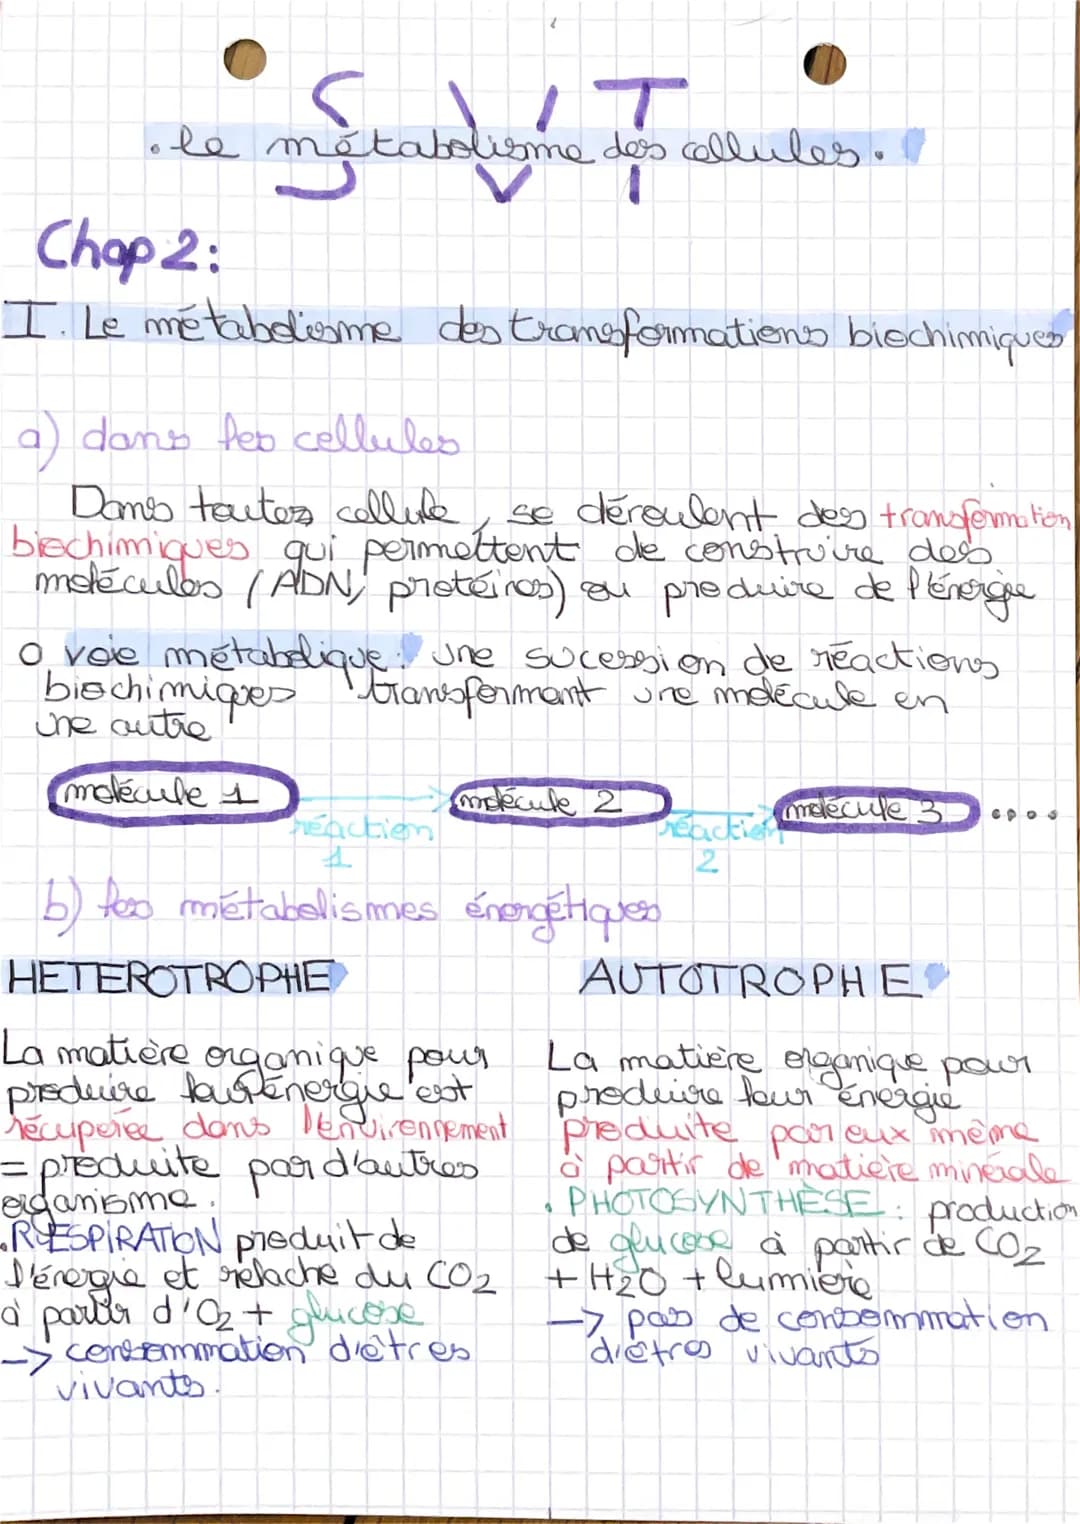 SVT
. le métabolisme des cellules.
Chap 2:
I. Le métabolisme des transformations biochimiques
a) dans les cellules
Dans toutes cellule, se déroulent des transformation
biochimiques qui permettent de construire des
molécules (ADN, protéines) ou produire de l'énergie
o voie métabolique : une sucession de réactions
biochimiques transformant une molécule en
une autre
molécule 1 molécule 2 molécule 3 ....
réaction réaction
1 2
b) les métabolismes énergétiques
HETEROTROPHE
La matière organique pour
produire leur énergie est
récuperée dans l'environnement
= produite par d'autres
organisme.
.RESPIRATION produit de
l'énergie et relache du CO2
à partir d'O2 + glucose
-> consommation d'êtres
vivants.
AUTOTROPHE
La matière organique pour
produire leur énergie
produite par eux même
à partir de matière minérale
. PHOTOSYNTHÈSE : production
de glucose à partir de CO2
+ H2O + lumière
-> pas de consommation
d'êtres vivants